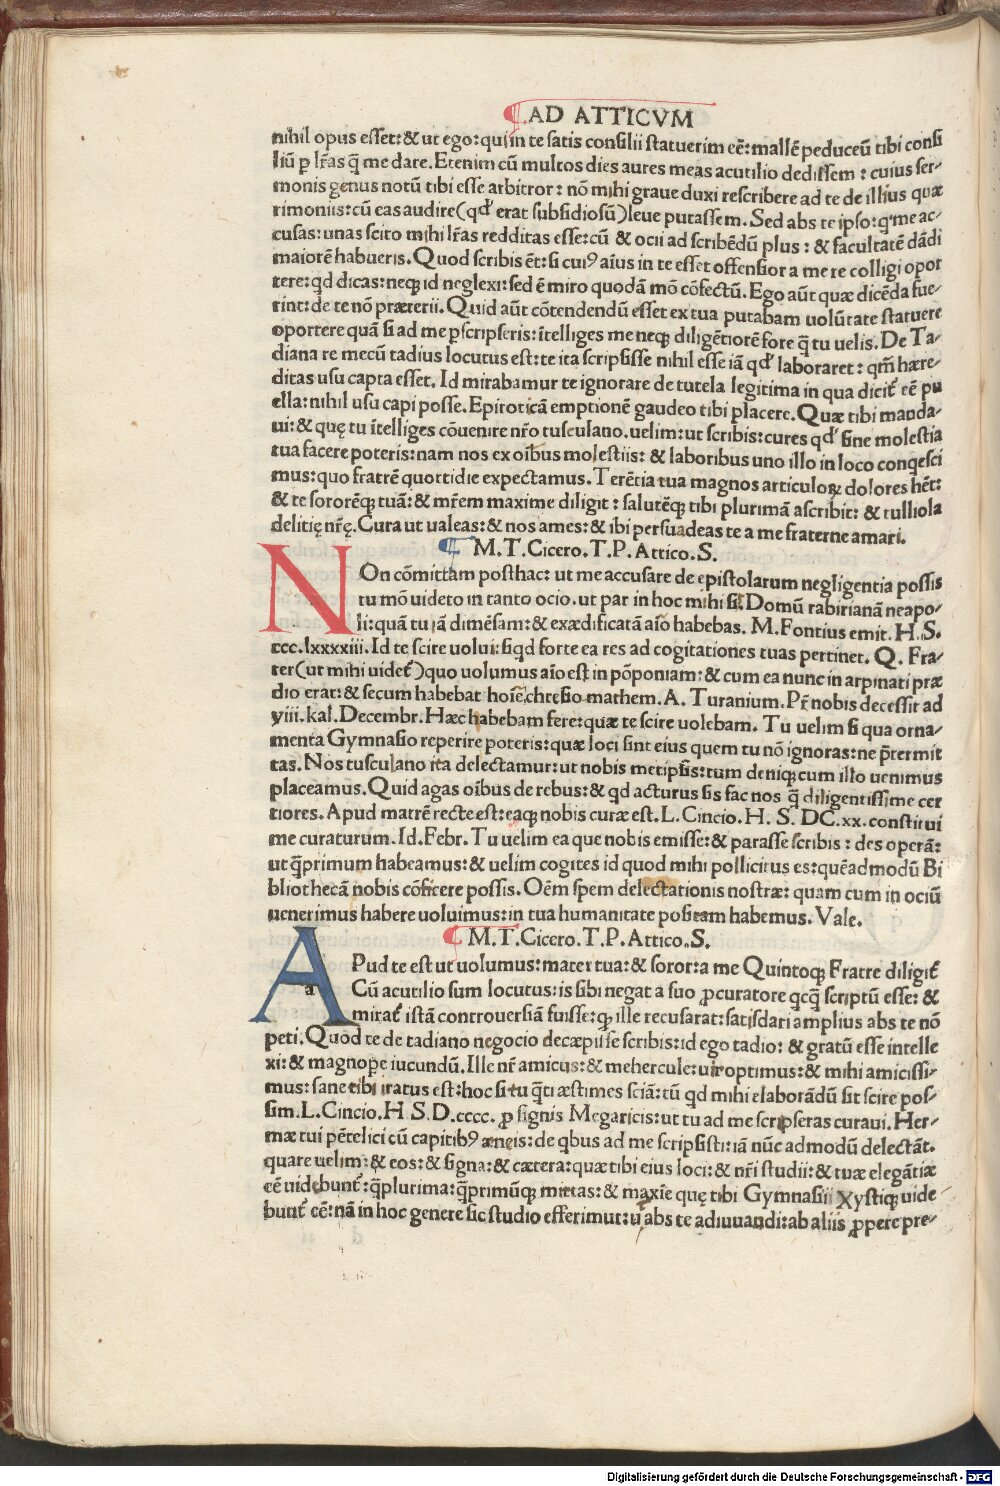 AD ATTICVM
nihil opus esset: & ut ego: qui in te satis consilii statuerim eē: mallē peduceū tibi consi
liū p lr̃as q̃ me dare. Etenim cū multos dies aures meas acutilio dedissem: cuius ser-
monis genus notū tibi esse arbitror: nō mihi graue duxi rescribere ad te de illius quæ
rimoniis: cū eas audire (qd' erat subsidiosū) leue putassem. Sed abs te ipso: q' me ac-
cusas: unas scito mihi lr̃as redditas esse: cū & ocii ad scribēdū plus: & facultatē dādi
maiorē habueris. Quod scribis ēt: si cui⁹ aīus in te esset offensior a me re colligi opor
tere: qd dicas: neq; id neglexi: sed ē miro quodā mō cōfectū. Ego aūt quæ dicēda fue-
rint: de te nō præterii. Quid aūt cōtendendū esset ex tua putabam uolūtate statuere
oportere quā si ad me pscripseris: ītelliges me neq; diligētiorē fore q̃ tu uelis. De Ta-
diana re mecū tadius locutus est: te ita scripsisse nihil esse iā qd' laboraret: qm̄ hære-
ditas usu capta esset. Id mirabamur te ignorare de tutela legitima in qua dicit̃ eē pu
ella: nihil usu capi posse. Epiroticā emptionē gaudeo tibi placere. Quæ tibi manda-
ui: & quę tu ītelliges cōuenire nr̃o tusculano. uelim: ut scribis: cures qd' sine molestia
tua facere poteris: nam nos ex oībus molestiis: & laboribus uno illo in loco conq̣esci
mus: quo fratrē quottidie expectamus. Terētia tua magnos articuloꝝ dolores hēt:
& te sororēq; tuā: & mr̃em maxime diligit: salutēq; tibi plurimā ascribit: & tulliola
delitię nr̃ę. Cura ut ualeas: & nos ames: & ibi persuadeas te a me fraterne amari.
M. T. Cicero. T. P. Attico. S.
NOn cōmittam posthac: ut me accusare de epistolarum negligentia possis
tu mō uideto in tanto ocio. ut par in hoc mihi sis. Domū rabirianā neapo-
li: quā tu iā dimēsam: & exædificatā aīo habebas. M. Fontius emit. H. S.
ccc. lxxxxiii. Id te scire uolui: siqd forte ea res ad cogitationes tuas pertinet. Q. Fra-
ter (ut mihi uidet̃) quo uolumus aīo est in pōponiam: & cum ea nunc in arpinati præ
dio erat: & secum habebat hoīē chresio mathem. A. Turanium. Pr̃ nobis decessit ad
yiii. kal. Decembr. Hæc habebam fere: quæ te scire uolebam. Tu uelim si qua orna-
menta Gymnasio reperire poteris: quæ loci sint eius quem tu nō ignoras: ne p̄termit
tas. Nos tusculano ita delectamur: ut nobis metipsis: tum deniq; cum illo uenimus
placeamus. Quid agas oībus de rebus: & qd acturus sis fac nos q̃ diligentissime cer
tiores. Apud matrē recte est: eaq; nobis curæ est. L. Cincio. H. S. DC. xx. constitui
me curaturum. Id. Febr. Tu uelim ea que nobis emisse: & parasse scribis: des operā:
ut q̃primum habeamus: & uelim cogites id quod mihi pollicitus es: quēadmodū Bi
bliothecā nobis cōficere possis. Oēm spem delectationis nostræ: quam cum in ociū
uenerimus habere uoluimus: in tua humanitate positam habemus. Vale.
M. T. Cicero. T. P. Attico. S.
A a Pud te est ut uolumus: mater tua: & soror: a me Quintoq; Fratre diligit̃
Cū acutilio sum locutus: is sibi negat a suo ꝓcuratore qcq̃ scriptū esse: &
mirat̃ istā controuersiā fuisse: q; ille recusarat: satisdari amplius abs te nō
peti. Quod te de tadiano negocio decæpisse scribis: id ego tadio: & gratū esse intelle
xi: & magnope iucundū. Ille nr̃ amicus: & mehercule: uir optimus: & mihi amicissi-
mus: sane tibi iratus est: hoc si tu q̃ti æstimes sciā: tū qd mihi elaborādū sit scire pos-
sim. L. Cincio. H S. D. cccc. ꝓ signis Megaricis: ut tu ad me scripseras curaui. Her-
mæ tui pētelici cū capitib⁹ æneis: de qbus ad me scripsisti: iā nūc admodū delectāt.
quare uelim: & eos: & signa: & cætera: quæ tibi eius loci: & nr̃i studii: & tuæ elegātiæ
eē uidebunt̃: q̃plurima: q̃primūq; mittas: & maxīe quę tibi Gymnasii Xystiq; uide
bunt̃ eē: nā in hoc genere sic studio efferimur: ut abs te adiuuandi: ab aliis ꝓpere pre-
Digitalisierung gefördert durch die Deutsche Forschungsgemeinschaft - DFG